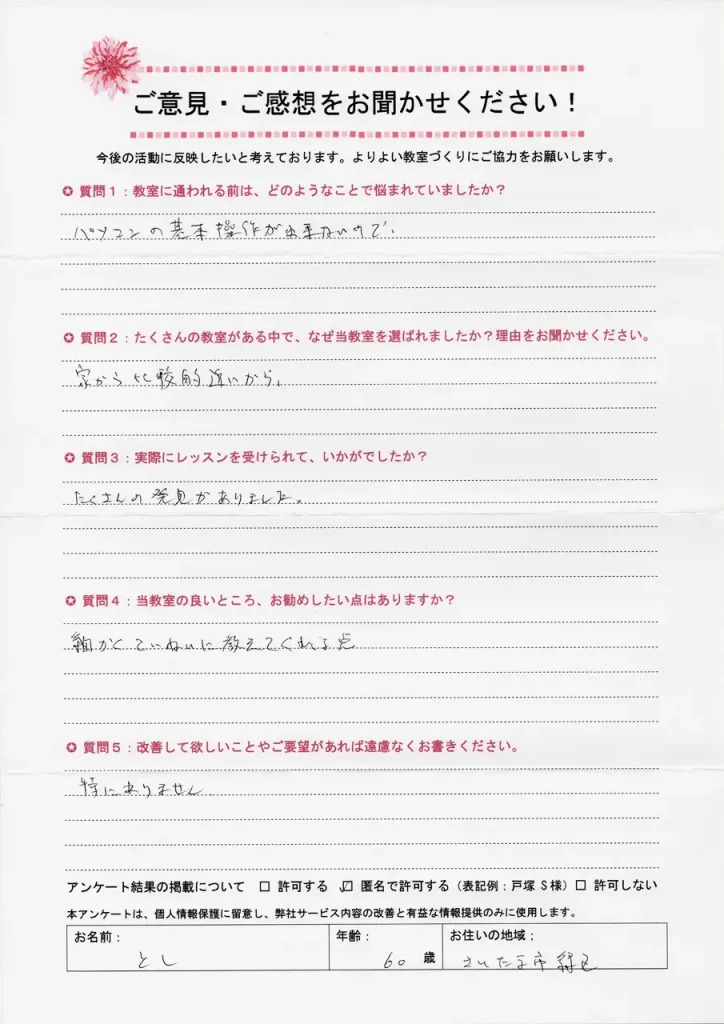 ご意見・ご感想をお聞かせください！
今後の活動に反映したいと考えております。よりよい教室づくりにご協力をお願いします。
✪ 質問１：教室に通われる前は、どのようなことで悩まれていましたか？
パソコンの基本操作が出来ないので、
✪ 質問２：たくさんの教室がある中で、なぜ当教室を選ばれましたか？理由をお聞かせください。
家から比較的近いから。
✪ 質問３：実際にレッスンを受けられて、いかがでしたか？
たくさんの発見がありました。
✪ 質問４：当教室の良いところ、お勧めしたい点はありますか？
細かくていねいに教えてくれる点
✪ 質問５：改善して欲しいことやご要望があれば遠慮なくお書きください。
特にありません
アンケート結果の掲載について □ 許可する ☑ 匿名で許可する（表記例：戸塚 S 様）□ 許可しない
本アンケートは、個人情報保護に留意し、弊社サービス内容の改善と有益な情報提供のみに使用します。
お名前： 年齢： お住いの地域：
とし 60 歳 さいたま市 緑区